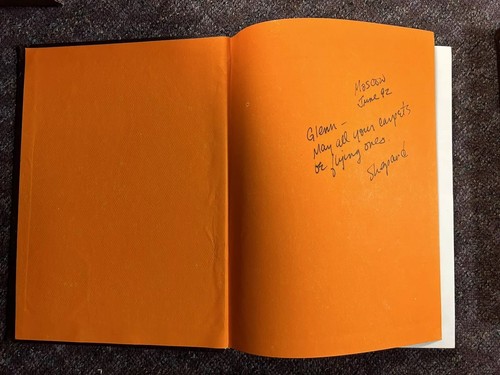 Moscow
June 92
Glenn –
May all your carpets
be flying ones.